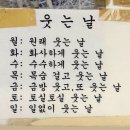 웃는 날
월: 원래 웃는 날
화: 화사하게 웃는 날
수: 수수하게 웃는 날
목: 목숨 걸고 웃는 날
금: 금방 웃고, 또 웃는 날
토: 토실토실 웃는 날
일: 일없이 웃는 날